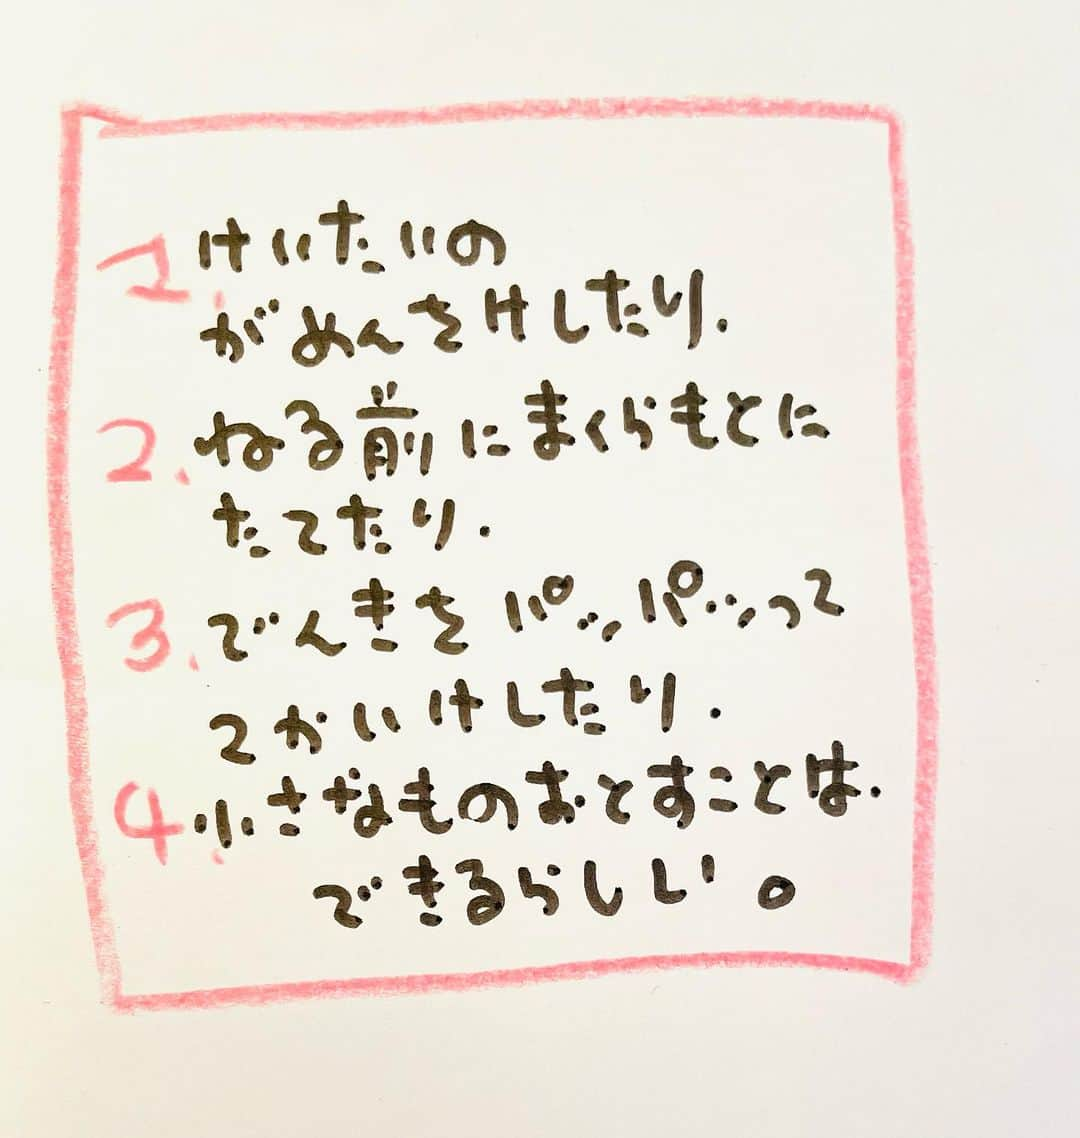 1. けいたいの
がめんをけしたり.
2. ねる前にまくらもとに
たてたり.
3. でんきをパッパッって
2かいけしたり.
4. 小さなものおとすことは.
できるらしい。